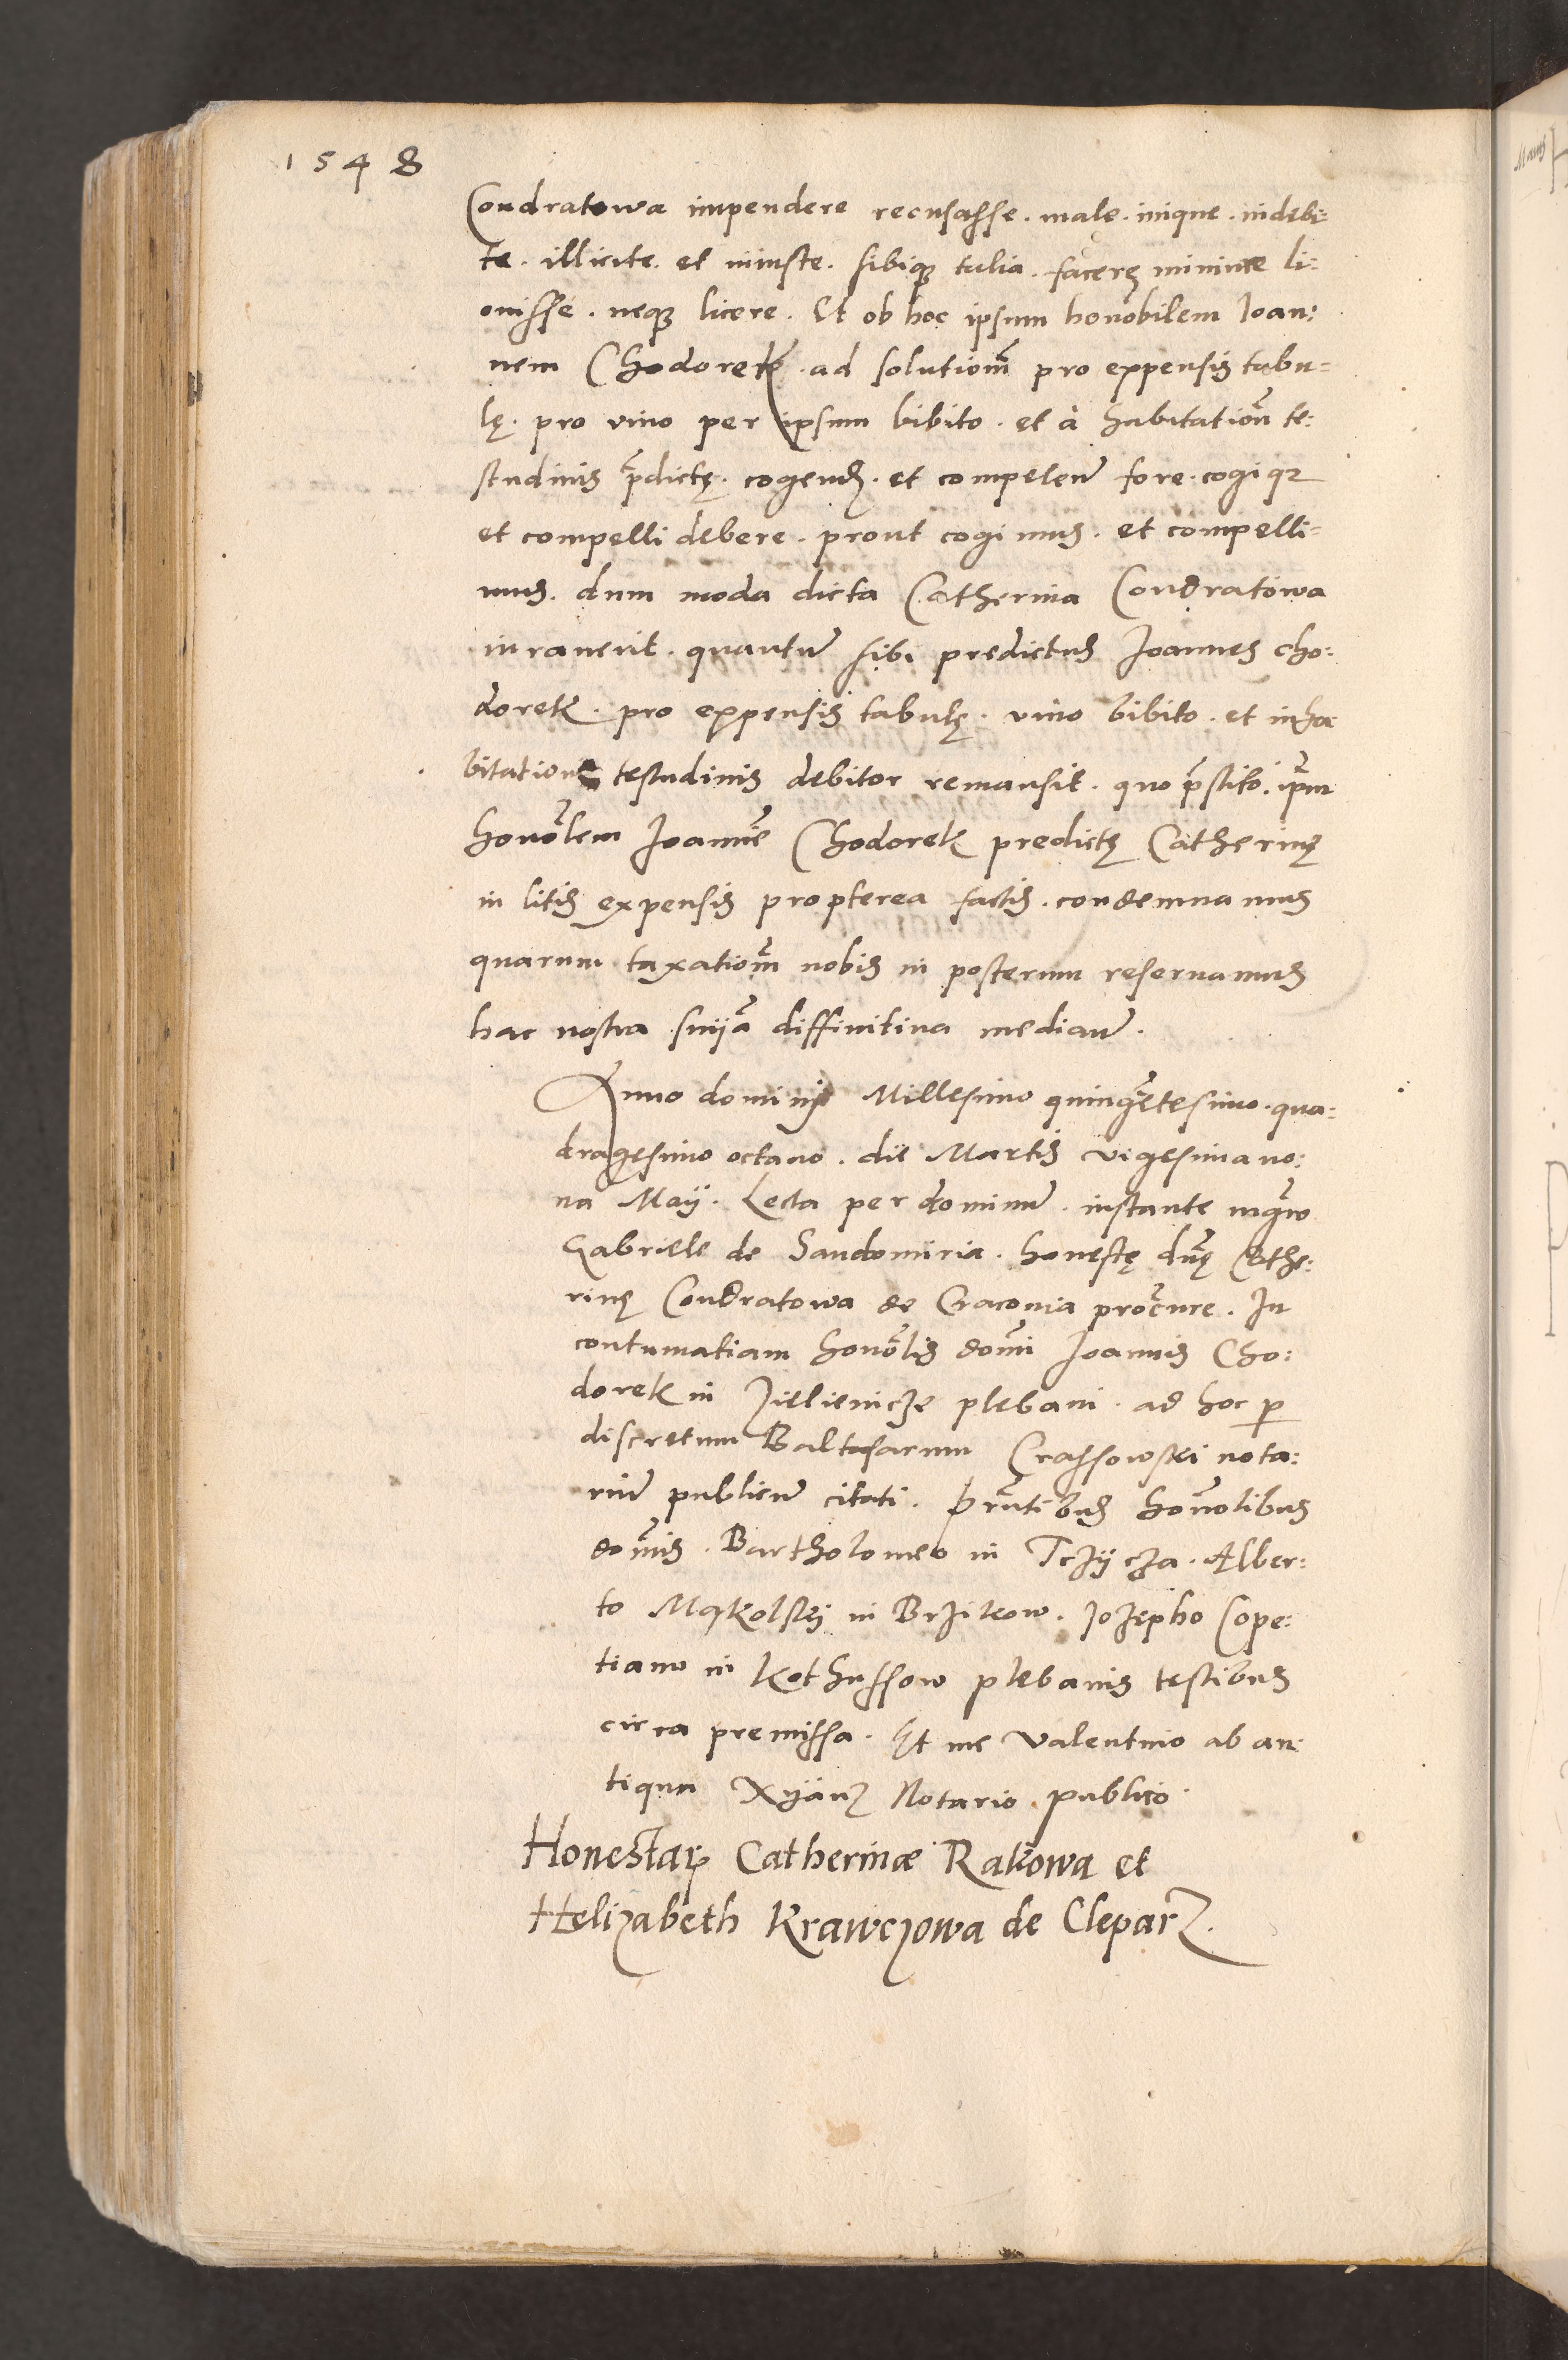 1548
Condratowa impendere recusasse. male. inique. indebi:
te. illicite. et iniuste. sibiq3 talia. facere minime li:
cuisse. neq3 licere. Et ob hoc ipsum honobilem Ioan:
nem Chodorek. ad solutiom̃ pro expensis tabu-
lę. pro vino per ipsum bibito. et à habitatioñ te:
studinis p̃dictę. cogend. et compelleñ fore. cogiq3
et compelli debere. prout cogimus. et compelli-
mus. dum moda dicta Catherina Condratowa
iurauerit. quantũ sibi predictus Joannes Cho:
dorek. pro expensis tabulę. vino bibito. et inha
bitatione testudinis debitor remansit. quo p̃stito. ip̃m
honor̃lem Joannẽ Chodorek predictę Catherinę
in litis expensis propterea factis. condemnamus
quarum taxatiom̃ nobis in posterum reseruamus
hac nostra sñiã diffinitiua mediañ.
Anno domini Millesimo quingẽtesimo. qua:
dragesimo octauo. die Martis vigesima no:
na Maij. Lecta per dominũ. instante mgr̃o
Gabriele de Sandomiria. honestę dñę Cathe:
rinę Condratowa de Cracouia procure. In
contumatiam honor̃lis domi Joannis Cho:
dorek in Zielienicze plebani. ad hoc p
discretum Baltasarum Crassowski nota:
riũ publicũ citati. Prñtibus honor̃libus
domis. Bartholomeo in Tczycza. Alber:
to Mąkolski in Brzikow. Jozepho Cope:
tiano in Kothussow plebanis testibus
circa premissa. Et me Valentino ab an:
tiqua Xyanz Notario publico.
Honestarum Catherinæ Rakowa et
Helizabeth Krawczowa de Cleparz.